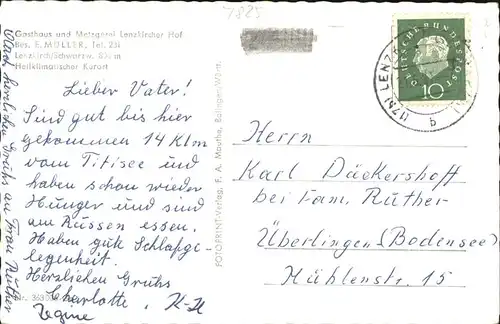 7825
Gasthaus und Metzgerei Lenzkircher Hof
Bes. E. MÜLLER, Tel. 231
Lenzkirch/Schwarzw. 810 m
Heilklimatischer Kurort
Lieber Vater!
Sind gut bis hier
gekommen 14 Klm
vom Titisee und
haben schon wieder
Hunger und sind
am Russen essen.
Haben gute Schlafge-
legenheit.
Herzlichen Gruhs
Charlotte. K-H
Regine
Herzliche Grühs an Frau Rüther
FOTOPRINT-Verlag, F. A. Mauthe, Balingen/Württ.
DEUTSCHE BUNDESPOST
10
(17b) LENZ
b
Herrn
Karl Däckershoff
bei Fam. Ruther
Überlingen (Bodensee)
Mühlenstr. 15
Nr.